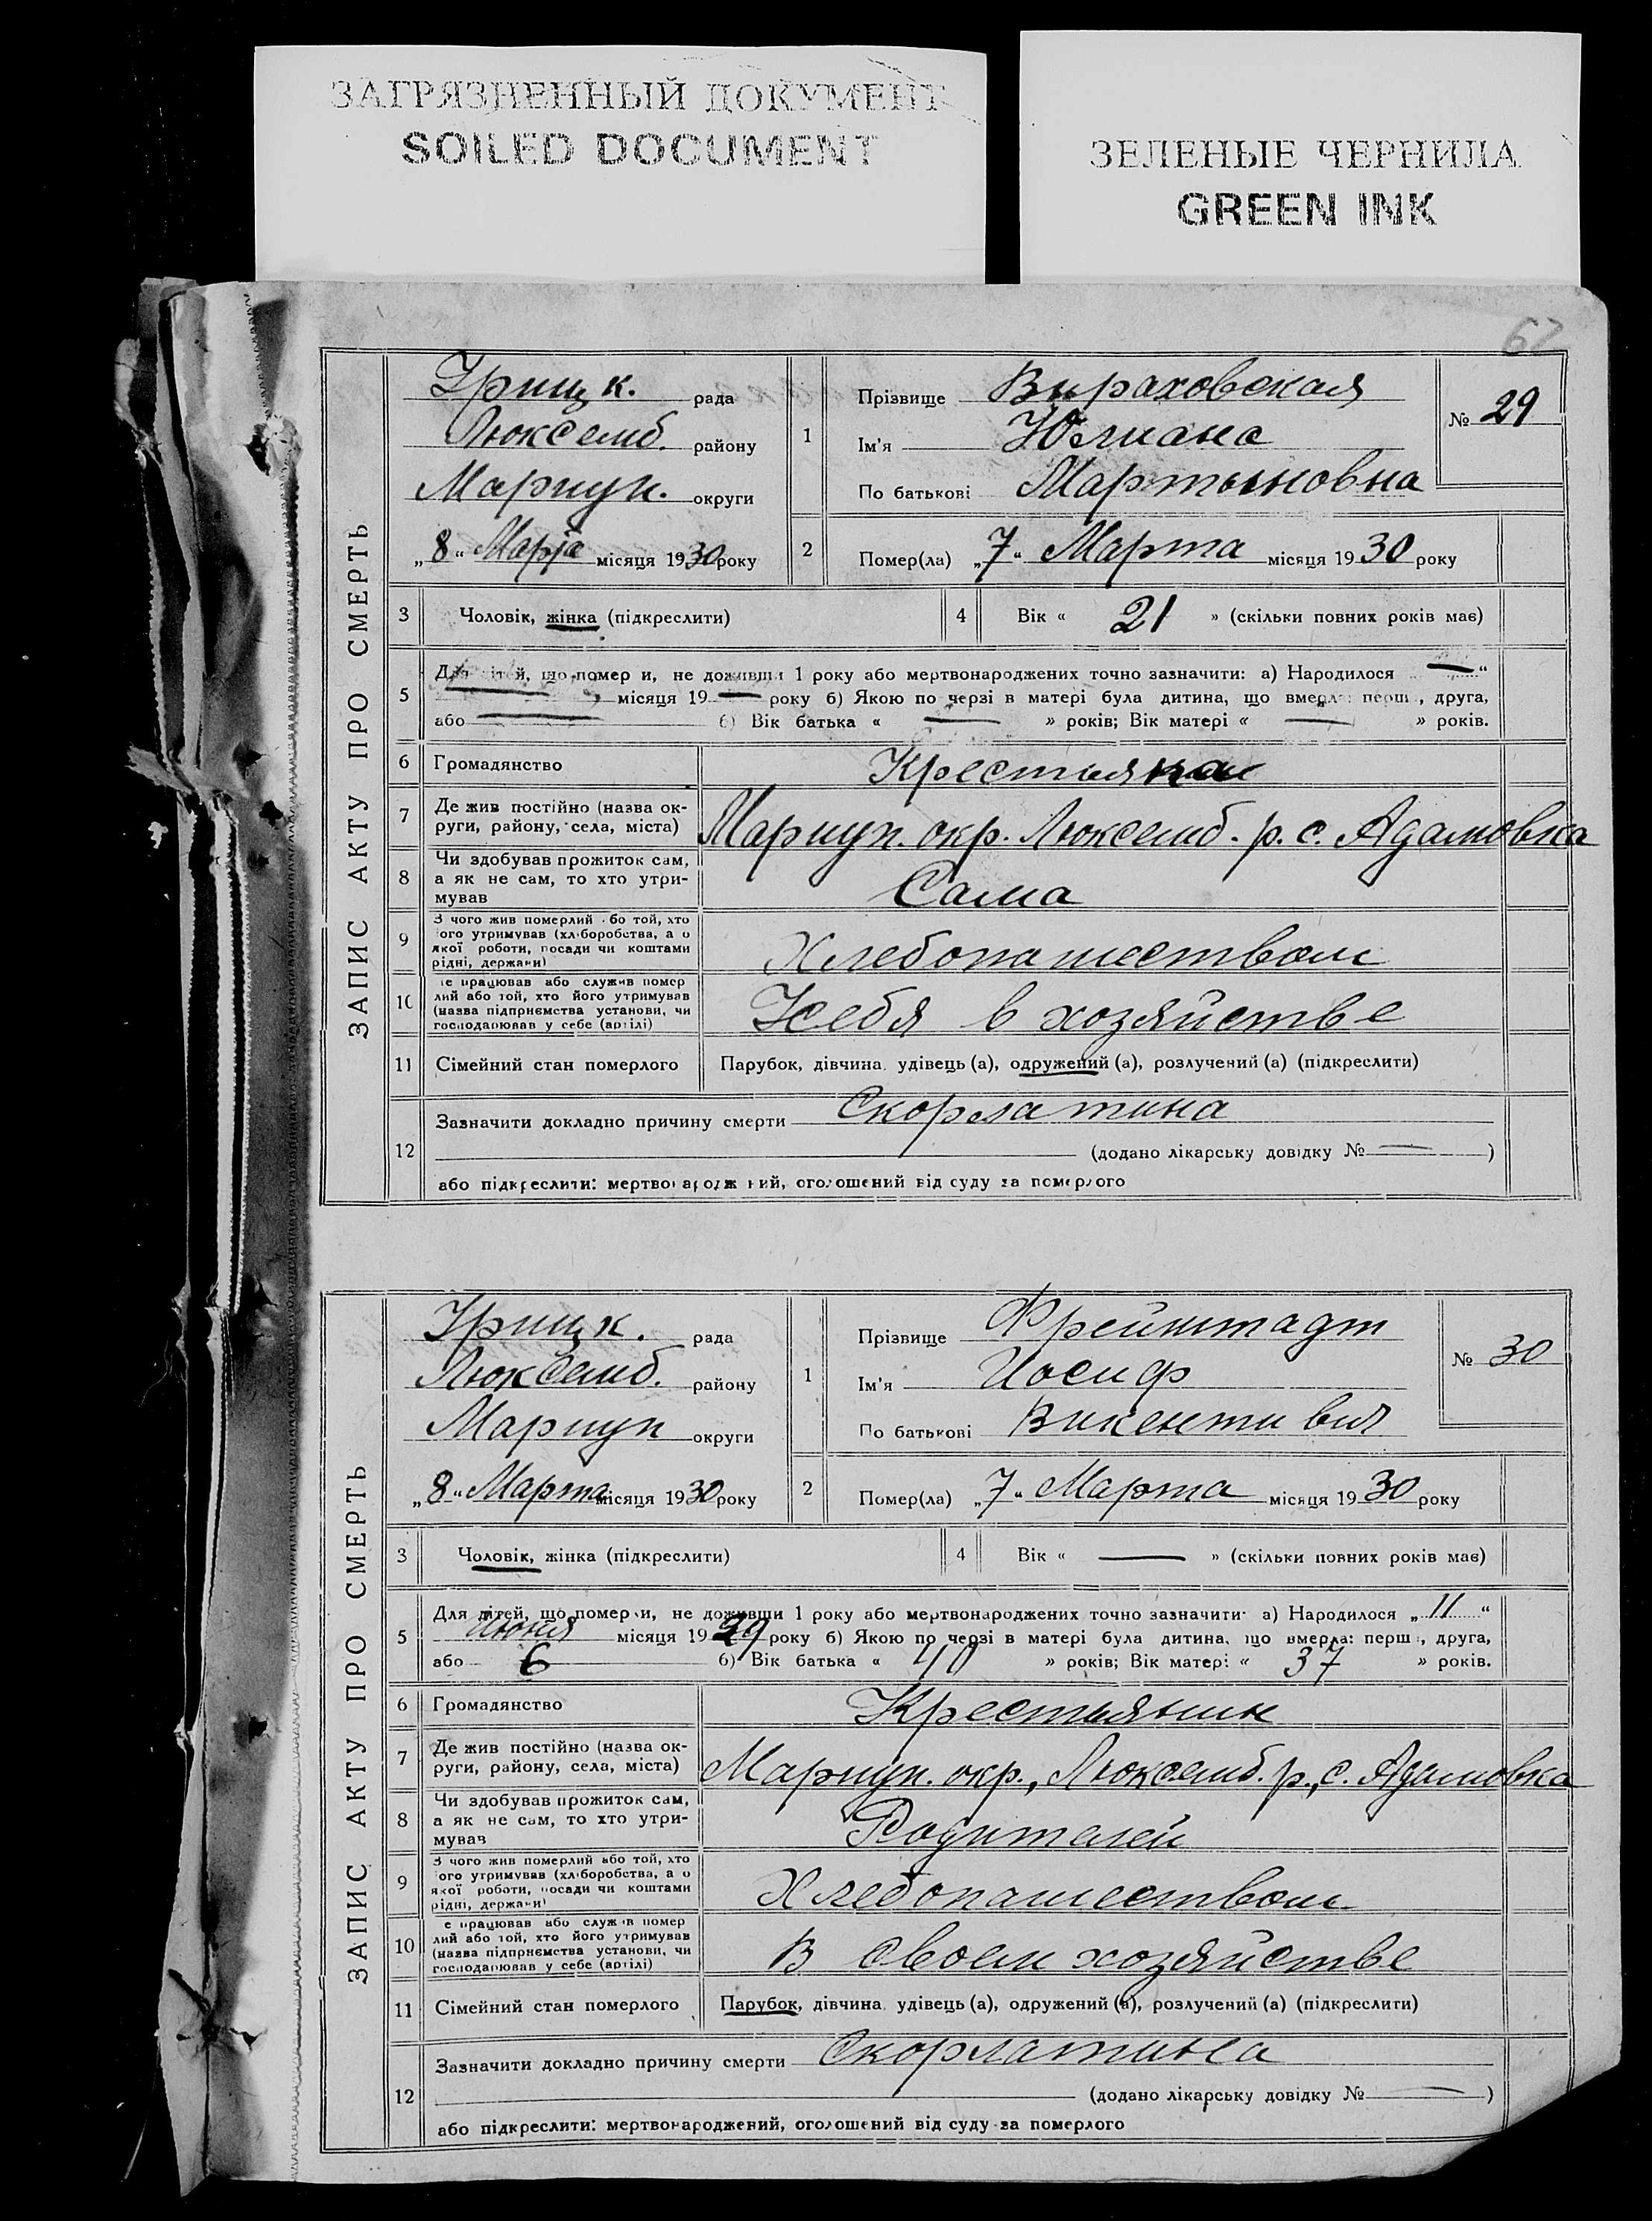 ЗАГРЯЗНЕННЫЙ ДОКУМЕНТ
SOILED DOCUMENT
ЗЕЛЕНЫЕ ЧЕРНИЛА
GREEN INK
62
ЗАПИС АКТУ ПРО СМЕРТЬ
Урицк. рада
Люксемб. району
Мариуп. округи
„8“ Марта місяця 1930 року
1 Прізвище Вираховская
Ім'я Юлиана
По батькові Мартыновна
№ 29
2 Помер(ла) „7“ Марта місяця 1930 року
3 Чоловік, жінка (підкреслити)
4 Вік « 21 » (скільки повних років має)
5 Для дітей, що померли, не доживши 1 року або мертвонароджених точно зазначити: а) Народилося — “
— місяця 19 — року б) Якою по черзі в матері була дитина, що вмерла: перша, друга,
або — б) Вік батька « — » років; Вік матері « — » років.
6 Громадянство Крестьянка
7 Де жив постійно (назва ок-
руги, району, села, міста) Мариуп. окр. Люксемб. р. с. Адамовка
8 Чи здобував прожиток сам,
а як не сам, то хто утри-
мував Сама
9 З чого жив померлий або той, хто
його утримував (хліборобства, а о
якої роботи, посади чи коштами
рідні, держави) Хлебопашеством
10 Де працював або служив помер
лий або той, хто його утримував
(назва підприємства установи, чи
господарював у себе (артілі) У себя в хозяйстве
11 Сімейний стан померлого Парубок, дівчина, удівець (а), одружений (а), розлучений (а) (підкреслити)
12 Зазначити докладно причину смерти Скорлатина
(додано лікарську довідку № — )
або підкреслити: мертвонароджений, оголошений від суду за померлого
ЗАПИС АКТУ ПРО СМЕРТЬ
Урицк. рада
Люксемб. району
Мариуп округи
„8“ Марта місяця 1930 року
1 Прізвище Фрейштадт
Ім'я Иосиф
По батькові Викентивич
№ 30
2 Помер(ла) „7“ Марта місяця 1930 року
3 Чоловік, жінка (підкреслити)
4 Вік « — » (скільки повних років має)
5 Для дітей, що померли, не доживши 1 року або мертвонароджених точно зазначити: а) Народилося „11“
Июня місяця 1929 року б) Якою по черзі в матері була дитина, що вмерла: перша, друга,
або 6 б) Вік батька « 40 » років; Вік матері « 37 » років.
6 Громадянство Крестьянин
7 Де жив постійно (назва ок-
руги, району, села, міста) Мариуп. окр., Люксемб. р., с. Адамовка
8 Чи здобував прожиток сам,
а як не сам, то хто утри-
мував Родителей
9 З чого жив померлий або той, хто
його утримував (хліборобства, а о
якої роботи, посади чи коштами
рідні, держави) Хлебопашеством
10 Де працював або служив помер
лий або той, хто його утримував
(назва підприємства установи, чи
господарював у себе (артілі) В своем хозяйстве
11 Сімейний стан померлого Парубок, дівчина, удівець (а), одружений (а), розлучений (а) (підкреслити)
12 Зазначити докладно причину смерти Скорлатина
(додано лікарську довідку № — )
або підкреслити: мертвонароджений, оголошений від суду за померлого